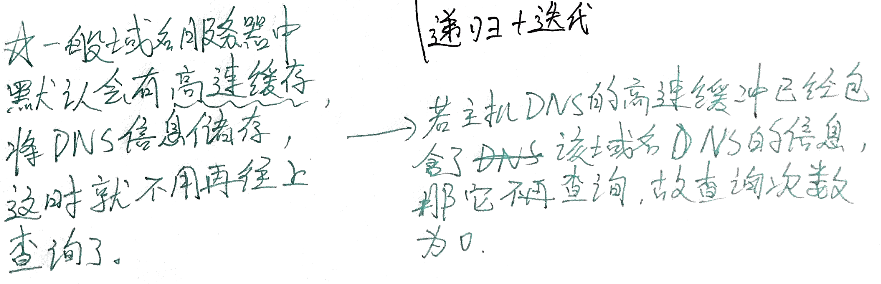 递归+迭代
☆一般域名服务器中
默认会有高速缓存,
将DNS信息储存,
这时就不用再往上
查询了。
→若主机DNS的高速缓冲已经包
含了DNS该域名DNS的信息,
那它不再查询,故查询次数
为0.